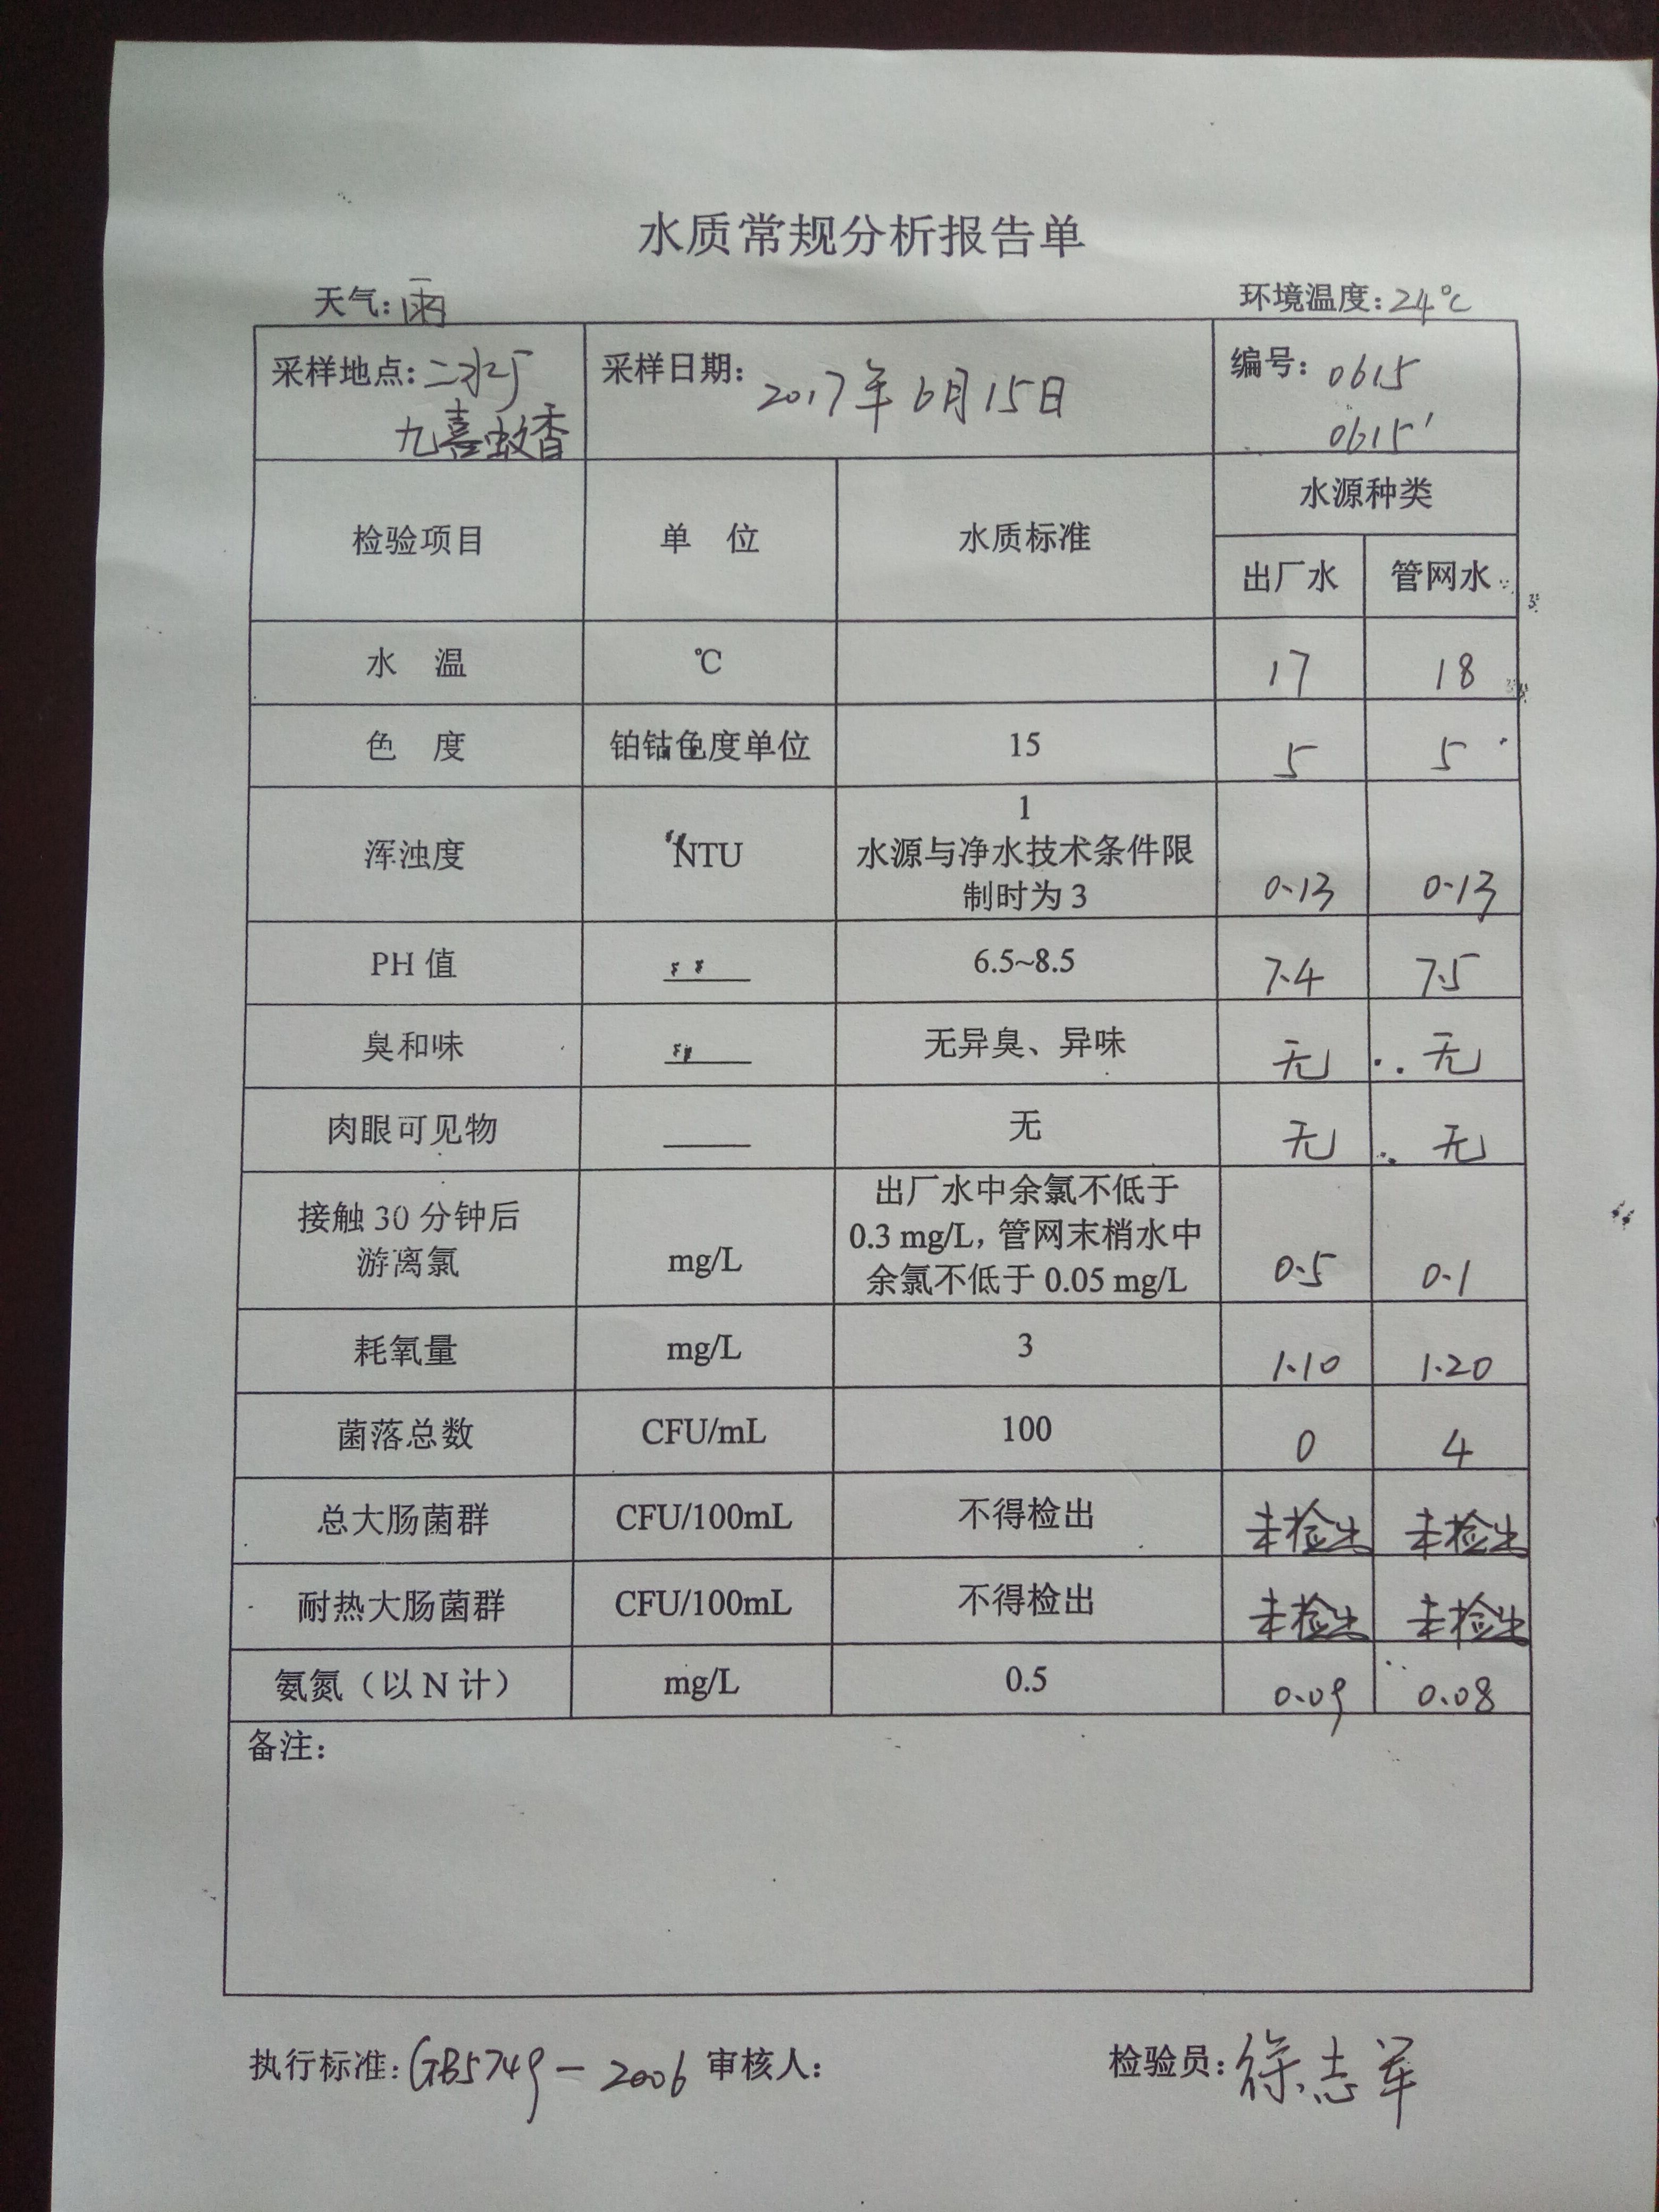 水质常规分析报告单
天气：雨 环境温度：24℃
采样地点：二水厂 采样日期：2017年6月15日 编号：0615
九喜蚊香 0615'
检验项目 单 位 水质标准 水源种类
出厂水 管网水
水 温 ℃ 17 18
色 度 铂钴色度单位 15 5 5
浑浊度 NTU 1
水源与净水技术条件限
制时为 3 0.13 0.13
PH 值 —— 6.5~8.5 7.4 7.5
臭和味 —— 无异臭、异味 无 无
肉眼可见物 —— 无 无 无
接触 30 分钟后
游离氯 mg/L 出厂水中余氯不低于
0.3 mg/L，管网末梢水中
余氯不低于 0.05 mg/L 0.5 0.1
耗氧量 mg/L 3 1.10 1.20
菌落总数 CFU/mL 100 0 4
总大肠菌群 CFU/100mL 不得检出 未检出 未检出
耐热大肠菌群 CFU/100mL 不得检出 未检出 未检出
氨氮（以 N 计） mg/L 0.5 0.09 0.08
备注：
执行标准：GB5749-2006 审核人： 检验员：徐志军